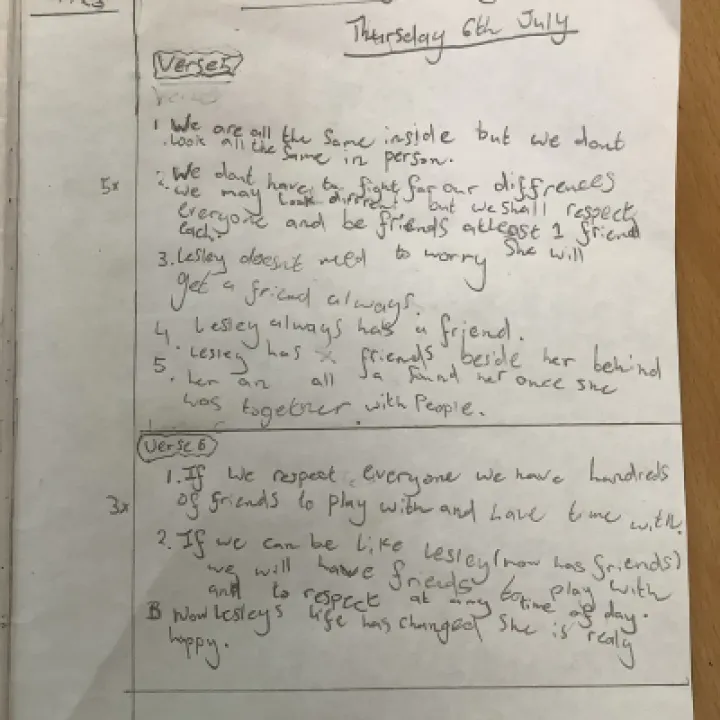 Thursday 6th July
Verse 5
1 We are all the same inside but we dont
look all the same in person.
5x
2. We dont have to fight for our diffrences
we may look diffrent but we shall respect
everyone and be friends atleast 1 friend
each.
3. Lesley doesnt need to worry She will
get a friend always.
4 Lesley always has a friend.
5. Lesley has friends beside her behind
her an all a found her once she
was togethrer with People.
Verse 6
1. If we respect everyone we have hundreds
3x
of friends to play with and have time with.
2. If we can be like Lesley (now has friends)
we will have friends to play with
and to respect at any time of day.
B Now Lesleys life has changed She is realy
happy.